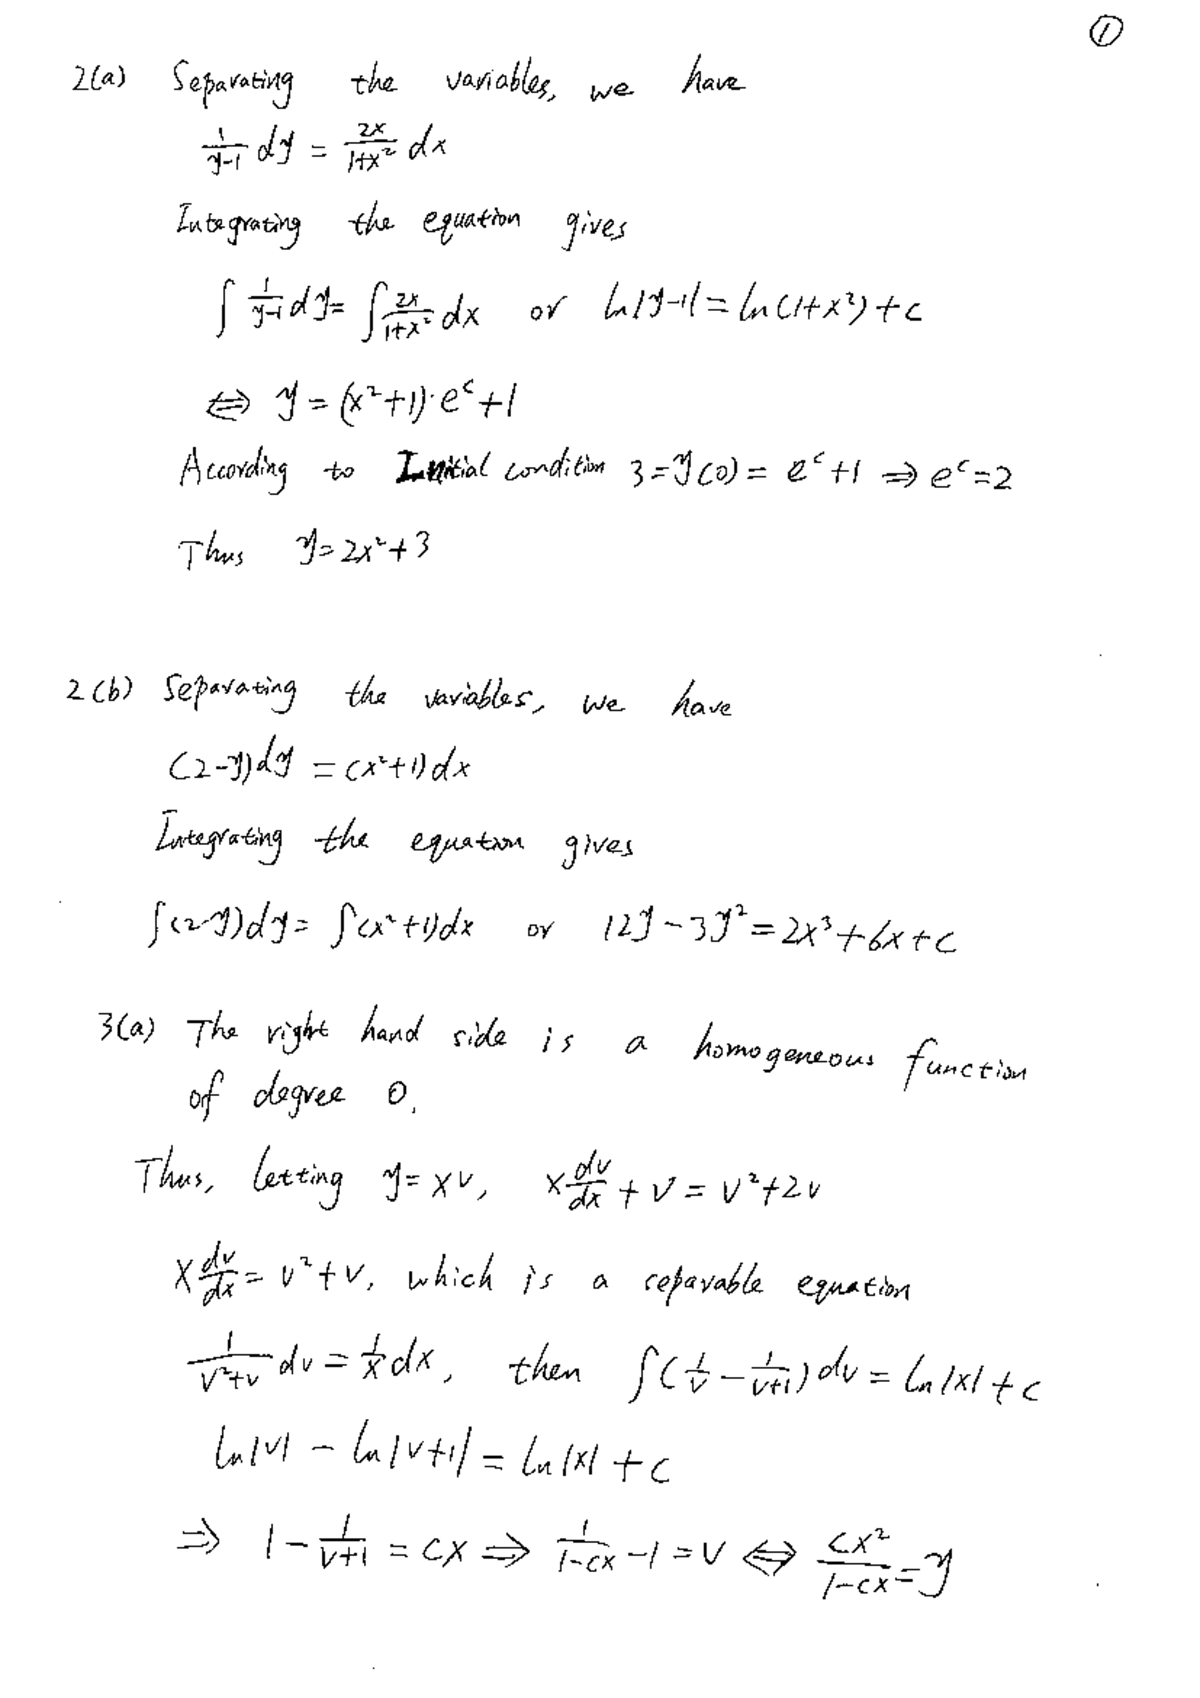 ①
2(a) Separating the variables, we have
1/(y-1) dy = 2x/(1+x²) dx
Integrating the equation gives
∫ 1/(y-1) dy = ∫ 2x/(1+x²) dx or ln|y-1| = ln(1+x²)+c
⇔ y = (x²+1)·e^c+1
According to Initial condition 3=y(0) = e^c+1 ⇒ e^c=2
Thus y=2x²+3
2(b) Separating the variables, we have
(2-y)dy = (x²+1)dx
Integrating the equation gives
∫(2-y)dy = ∫(x²+1)dx or 12y-3y² = 2x³+6x+c
3(a) The right hand side is a homogeneous function
of degree 0.
Thus, letting y=xv, x dv/dx + v = v²+2v
x dv/dx = v²+v, which is a separable equation
1/(v²+v) dv = 1/x dx, then ∫(1/v - 1/(v+1)) dv = ln|x|+c
ln|v| - ln|v+1| = ln|x| + c
⇒ 1 - 1/(v+1) = cx ⇒ 1/(1-cx) - 1 = v ⇔ cx²/(1-cx) = y